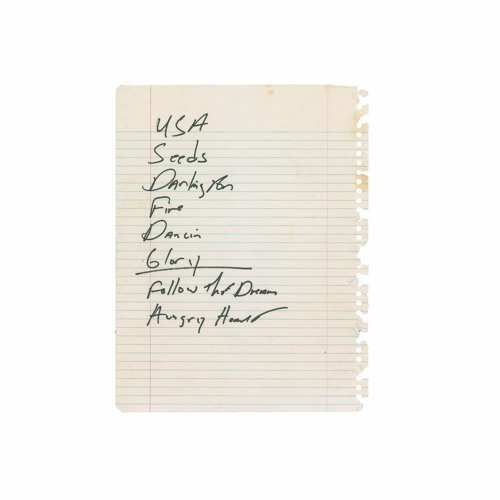 USA
Seeds
Darlington
Fire
Dancin
Glory
Follow That Dream
Angry Heart